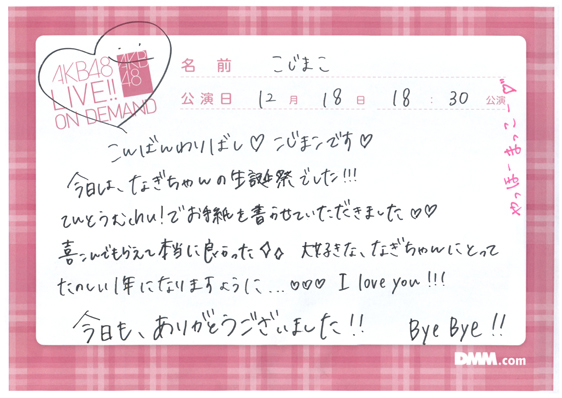 AKB48
LIVE!!
ON DEMAND
AKB
48
名前 こじまこ
公演日 12月 18日 18:30 公演
こんばんわりばし♡ こじまこです♡
今日は、なぎちゃんの生誕祭でした!!!
てんとうむchu!でお手紙を書かせていただきました♡♡
喜こんでもらえて本当に良かった 大好きな、なぎちゃんにとって
たのしい1年になりますように...♡♡♡ I love you!!!
今日も、ありがとうございました!! Bye Bye!!
やっほーまっこー
DMM.com